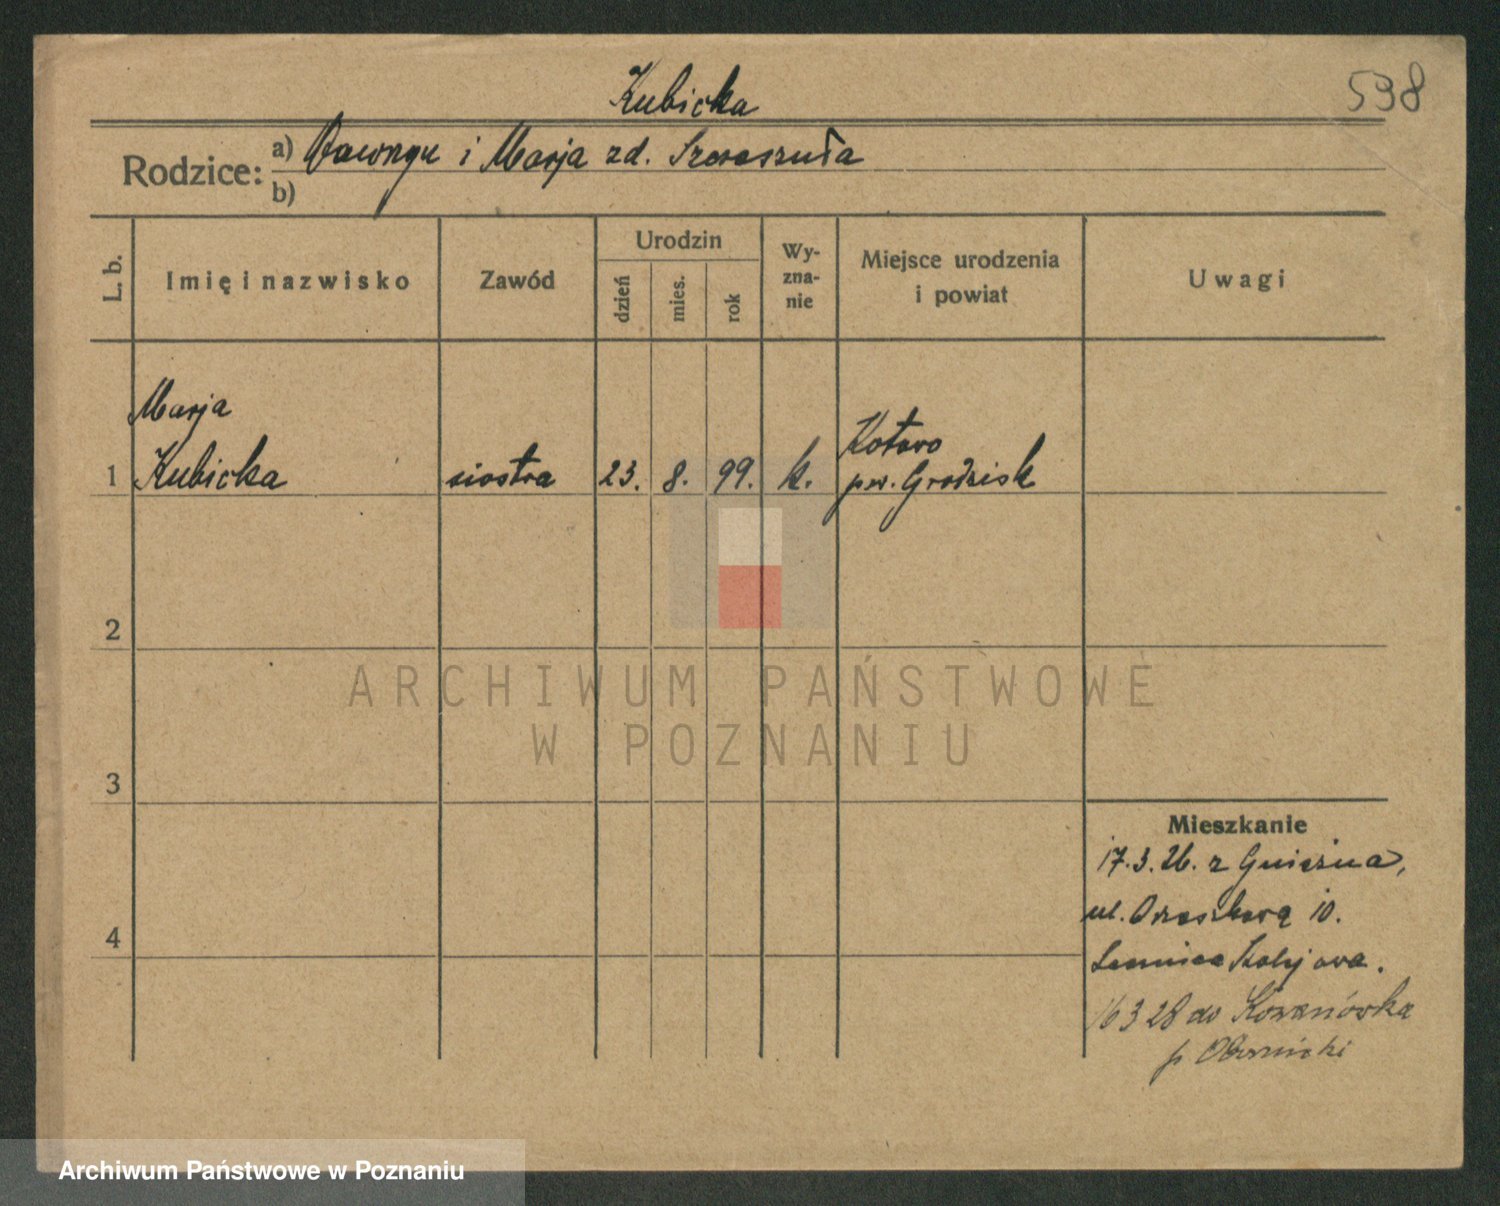 Kubicka
538
Rodzice: a) i Marja zd.
b)
L. b.
Imię i nazwisko
Zawód
Urodzin
dzień
mies.
rok
Wy-
zna-
nie
Miejsce urodzenia
i powiat
Uwagi
Marja
1 Kubicka siostra 23. 8. 99. k. Kotowo
pow. Grodzisk
2
ARCHIWUM PAŃSTWOWE
W POZNANIU
3
Mieszkanie
17.3.26. z Gniezna,
ul. Orzeszkową 10.
4
16 3 28 do Kowanówka
p Oborniki
Archiwum Państwowe w Poznaniu